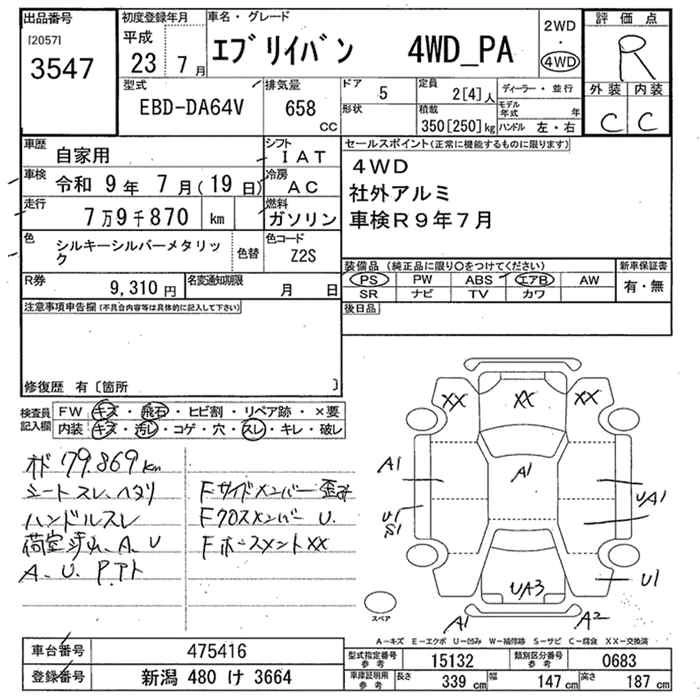 出品番号
[2057]
3547
初度登録年月
平成
23 7 月
車名・グレード
エブリイバン 4WD_PA
2WD
4WD
評価点
R
外装 内装
C C
型式
EBD-DA64V
排気量
658 CC
ドア
5
形状
定員
2[4] 人
積載
350[250] kg
ディーラー・並行
モデル年式 年
ハンドル 左・右
車歴
自家用
シフト
IAT
車検
令和 9年 7月(19日)
冷房
AC
走行
7万9千870 km
燃料
ガソリン
色
シルキーシルバーメタリック
色替
色コード
Z2S
R券
9,310 円
名変通知期限
月 日
セールスポイント(正常に機能するものに限ります)
4WD
社外アルミ
車検R9年7月
装備品 (純正品に限り○をつけてください)
PS PW ABS エアB AW
SR ナビ TV カワ
新車保証書
有・無
後日品
注意事項申告欄(不具合内容等は具体的に記入して下さい)
修復歴 有〔箇所 〕
検査員記入欄
FW キズ・飛石・ヒビ割・リペア跡・×要
内装 キズ・汚レ・コゲ・穴・スレ・キレ・破レ
オド 79.869km
シートスレ、ヘタリ
ハンドルスレ
A、U
A、U
Fサイドメンバー歪み
Fクロスメンバー U.
FホースメントXX
XX XX XX
A1 A1 UA1
U1
S1
UA3 U1
A1 A2
スペア
A-キズ E-エクボ U-凹み W-補修跡 S-サビ C-腐食 XX-交換済
車台番号 475416
登録番号 新潟 480 け 3664
型式指定番号 参考 15132
類別区分番号 参考 0683
車庫証明用 参考 長さ 339 cm 幅 147 cm 高さ 187 cm